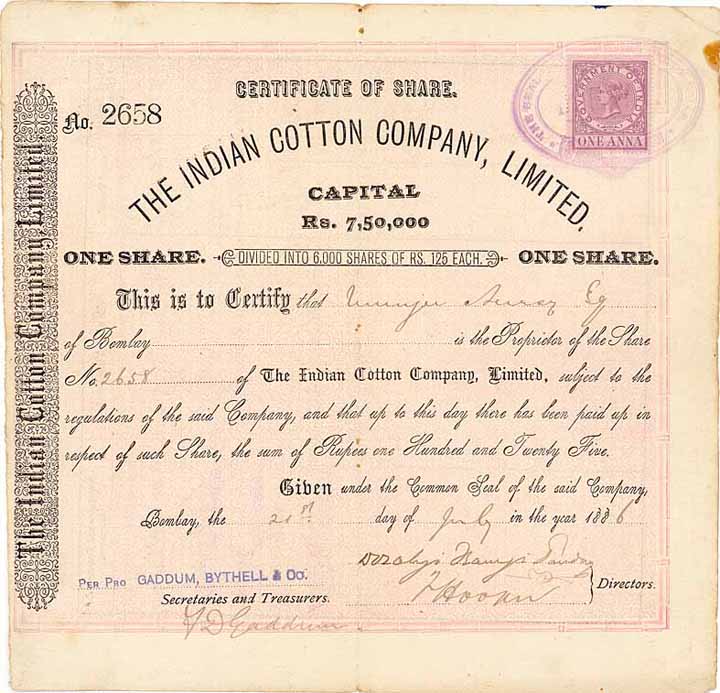 CERTIFICATE OF SHARE.
No. 2658
THE INDIAN COTTON COMPANY, LIMITED.
THE SEAL
GOVERNMENT OF INDIA
ONE ANNA
CAPITAL
Rs. 7,50,000
ONE SHARE. DIVIDED INTO 6,000 SHARES OF RS. 125 EACH. ONE SHARE.
This is to Certify that Esq
of Bombay is the Proprietor of the Share
No. 2658 of The Indian Cotton Company, Limited, subject to the
regulations of the said Company, and that up to this day there has been paid up in
respect of such Share, the sum of Rupees one Hundred and Twenty Five.
Given under the Common Seal of the said Company,
Bombay, the 21st day of July in the year 1886
PER PRO GADDUM, BYTHELL & CO.
Secretaries and Treasurers.
Directors.
Gaddum
The Indian Cotton Company, Limited.